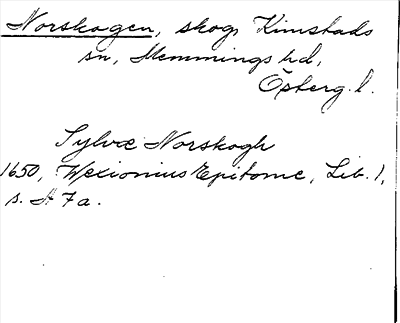 Norskogen, skog, Kimstads
sn, Memmings hd,
Österg. l.
Sylvæ Norskogh
1650, Wexionius Epitome, Lib. 1,
s. H 7 a.